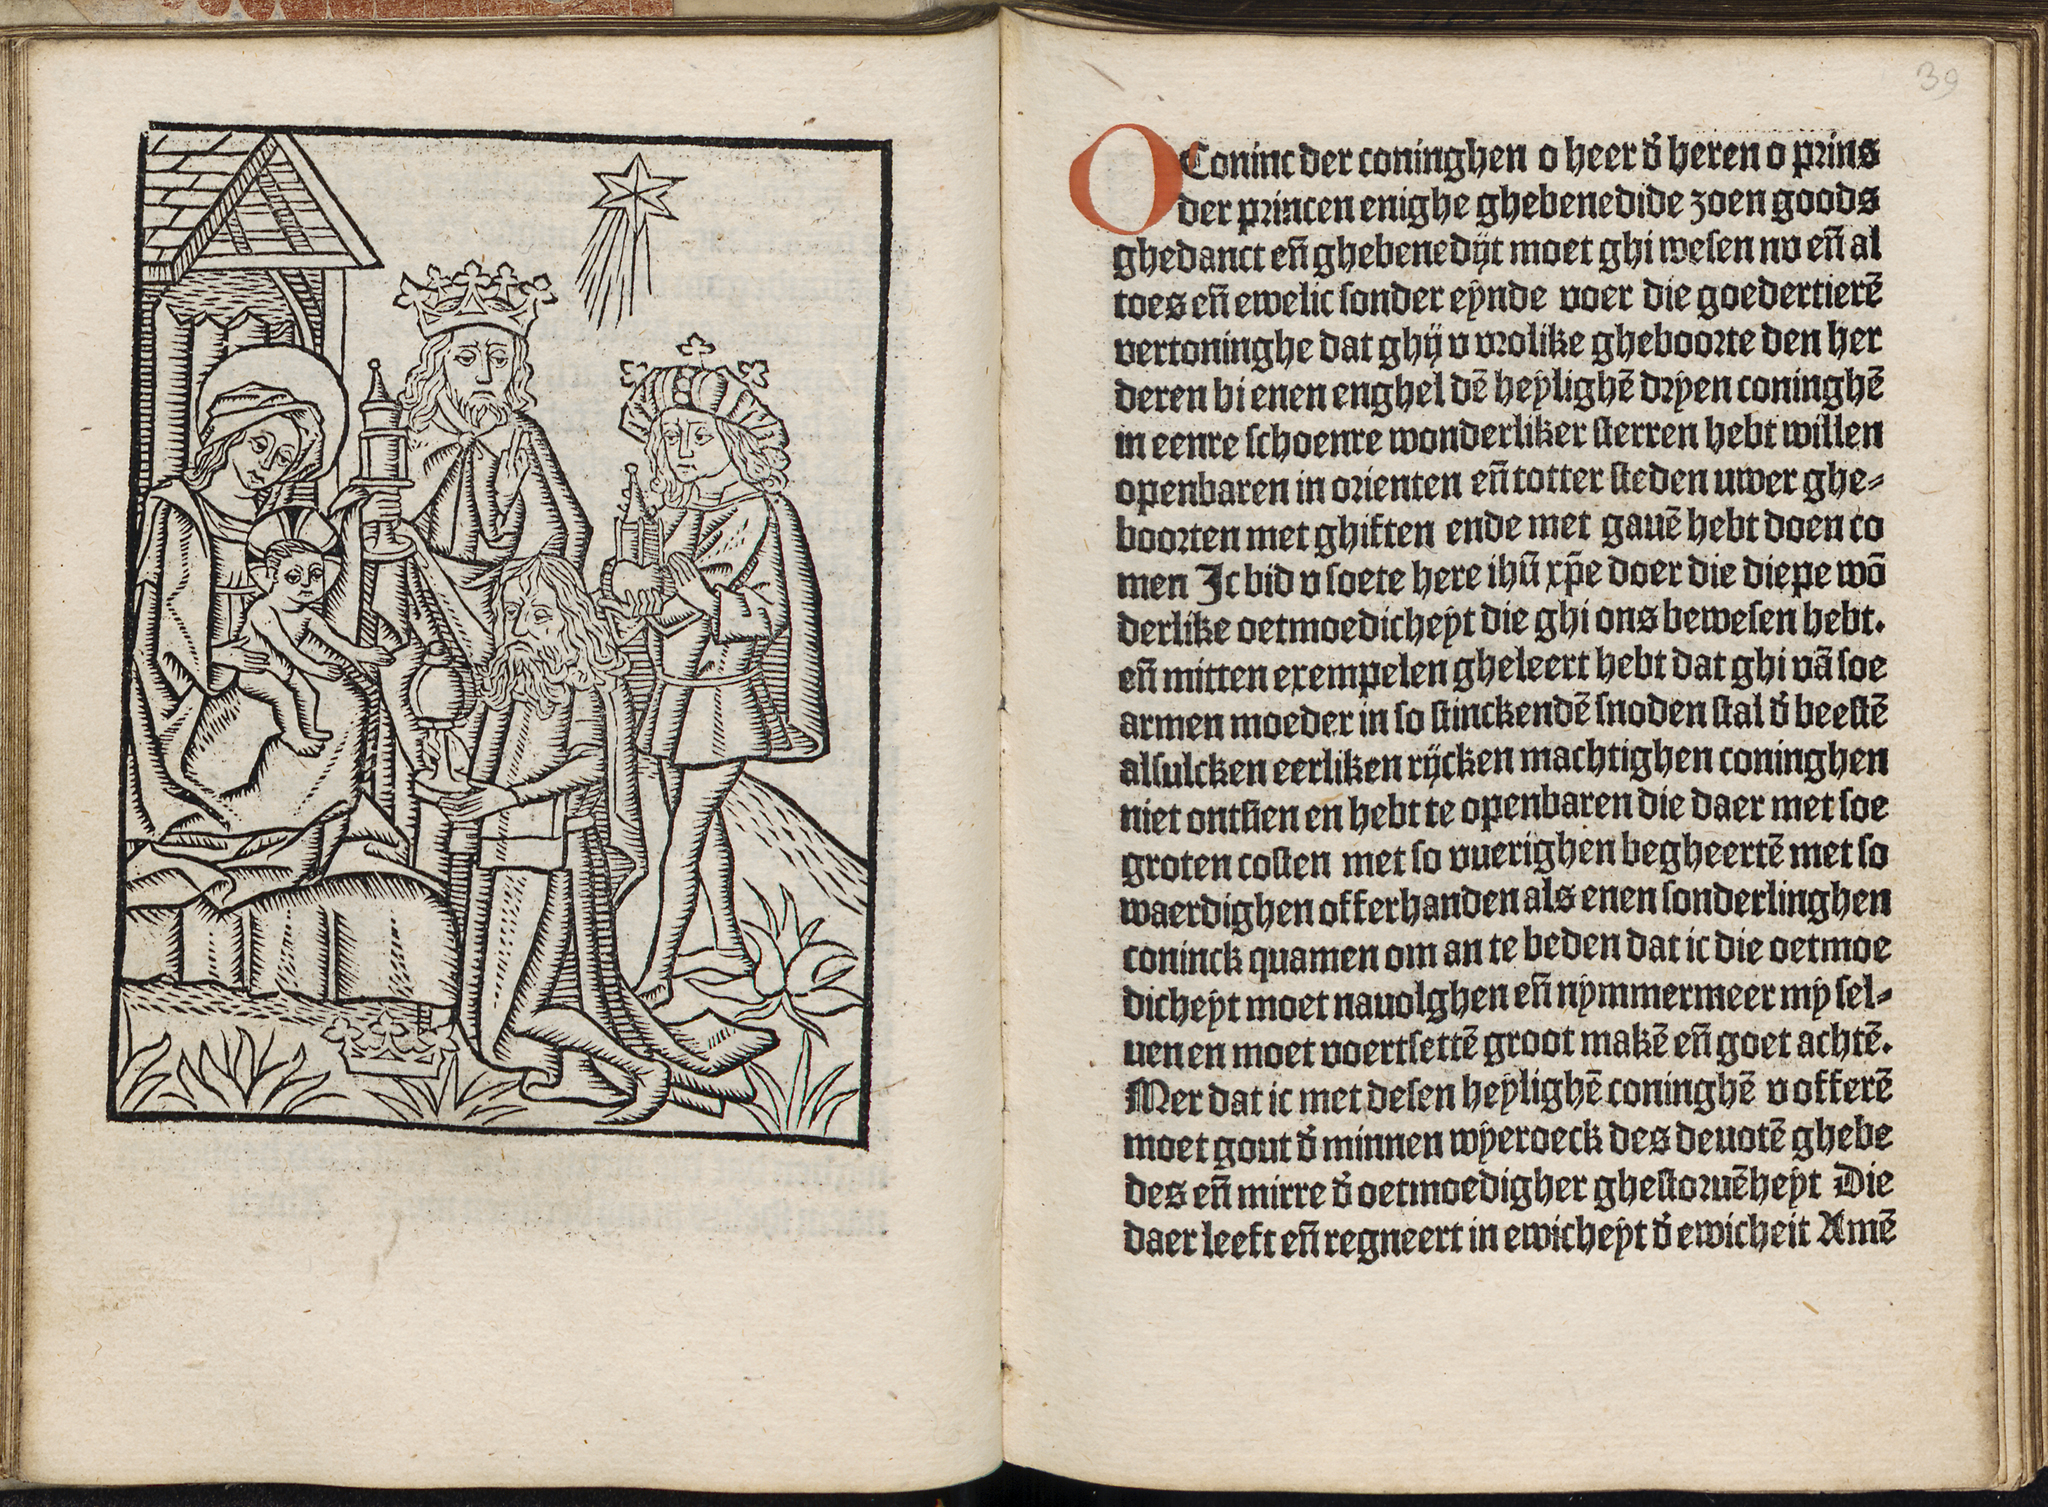 39
O Coninc der coninghen o heer d̕ heren o prins
der princen enighe ghebenedide zoen goods
ghedanct en̄ ghebenedijt moet ghi wesen nv en̄ al
toes en̄ ewelic sonder eynde voer die goedertierē
vertoninghe dat ghij v vrolike gheboorte den her
deren bi enen enghel dē heylighē dryen coninghē
in eenre schoenre wonderliker sterren hebt willen
openbaren in orienten en̄ totter steden uwer ghe⸗
boorten met ghiften ende met gauē hebt doen co
men Ic bid v soete here ihū xp̄e doer die diepe wō
derlike oetmoedicheyt die ghi ons bewesen hebt.
en̄ mitten exempelen gheleert hebt dat ghi vā soe
armen moeder in so stinckendē snoden stal d̕ beestē
alsulcken eerliken rijcken machtighen coninghen
niet ontsien en hebt te openbaren die daer met soe
groten costen met so vuerighen begheertē met so
waerdighen offerhanden als enen sonderlinghen
coninck quamen om an te beden dat ic die oetmoe
dicheyt moet nauolghen en̄ nymmermeer my sel⸗
uen en moet voertsettē groot makē en̄ goet achtē.
Mer dat ic met desen heylighē coninghē v offerē
moet gout d̕ minnen wyeroeck des deuotē ghebe
des en̄ mirre d̕ oetmoedigher ghestoruēheyt Die
daer leeft en̄ regneert in ewicheyt d̕ ewicheit Amē